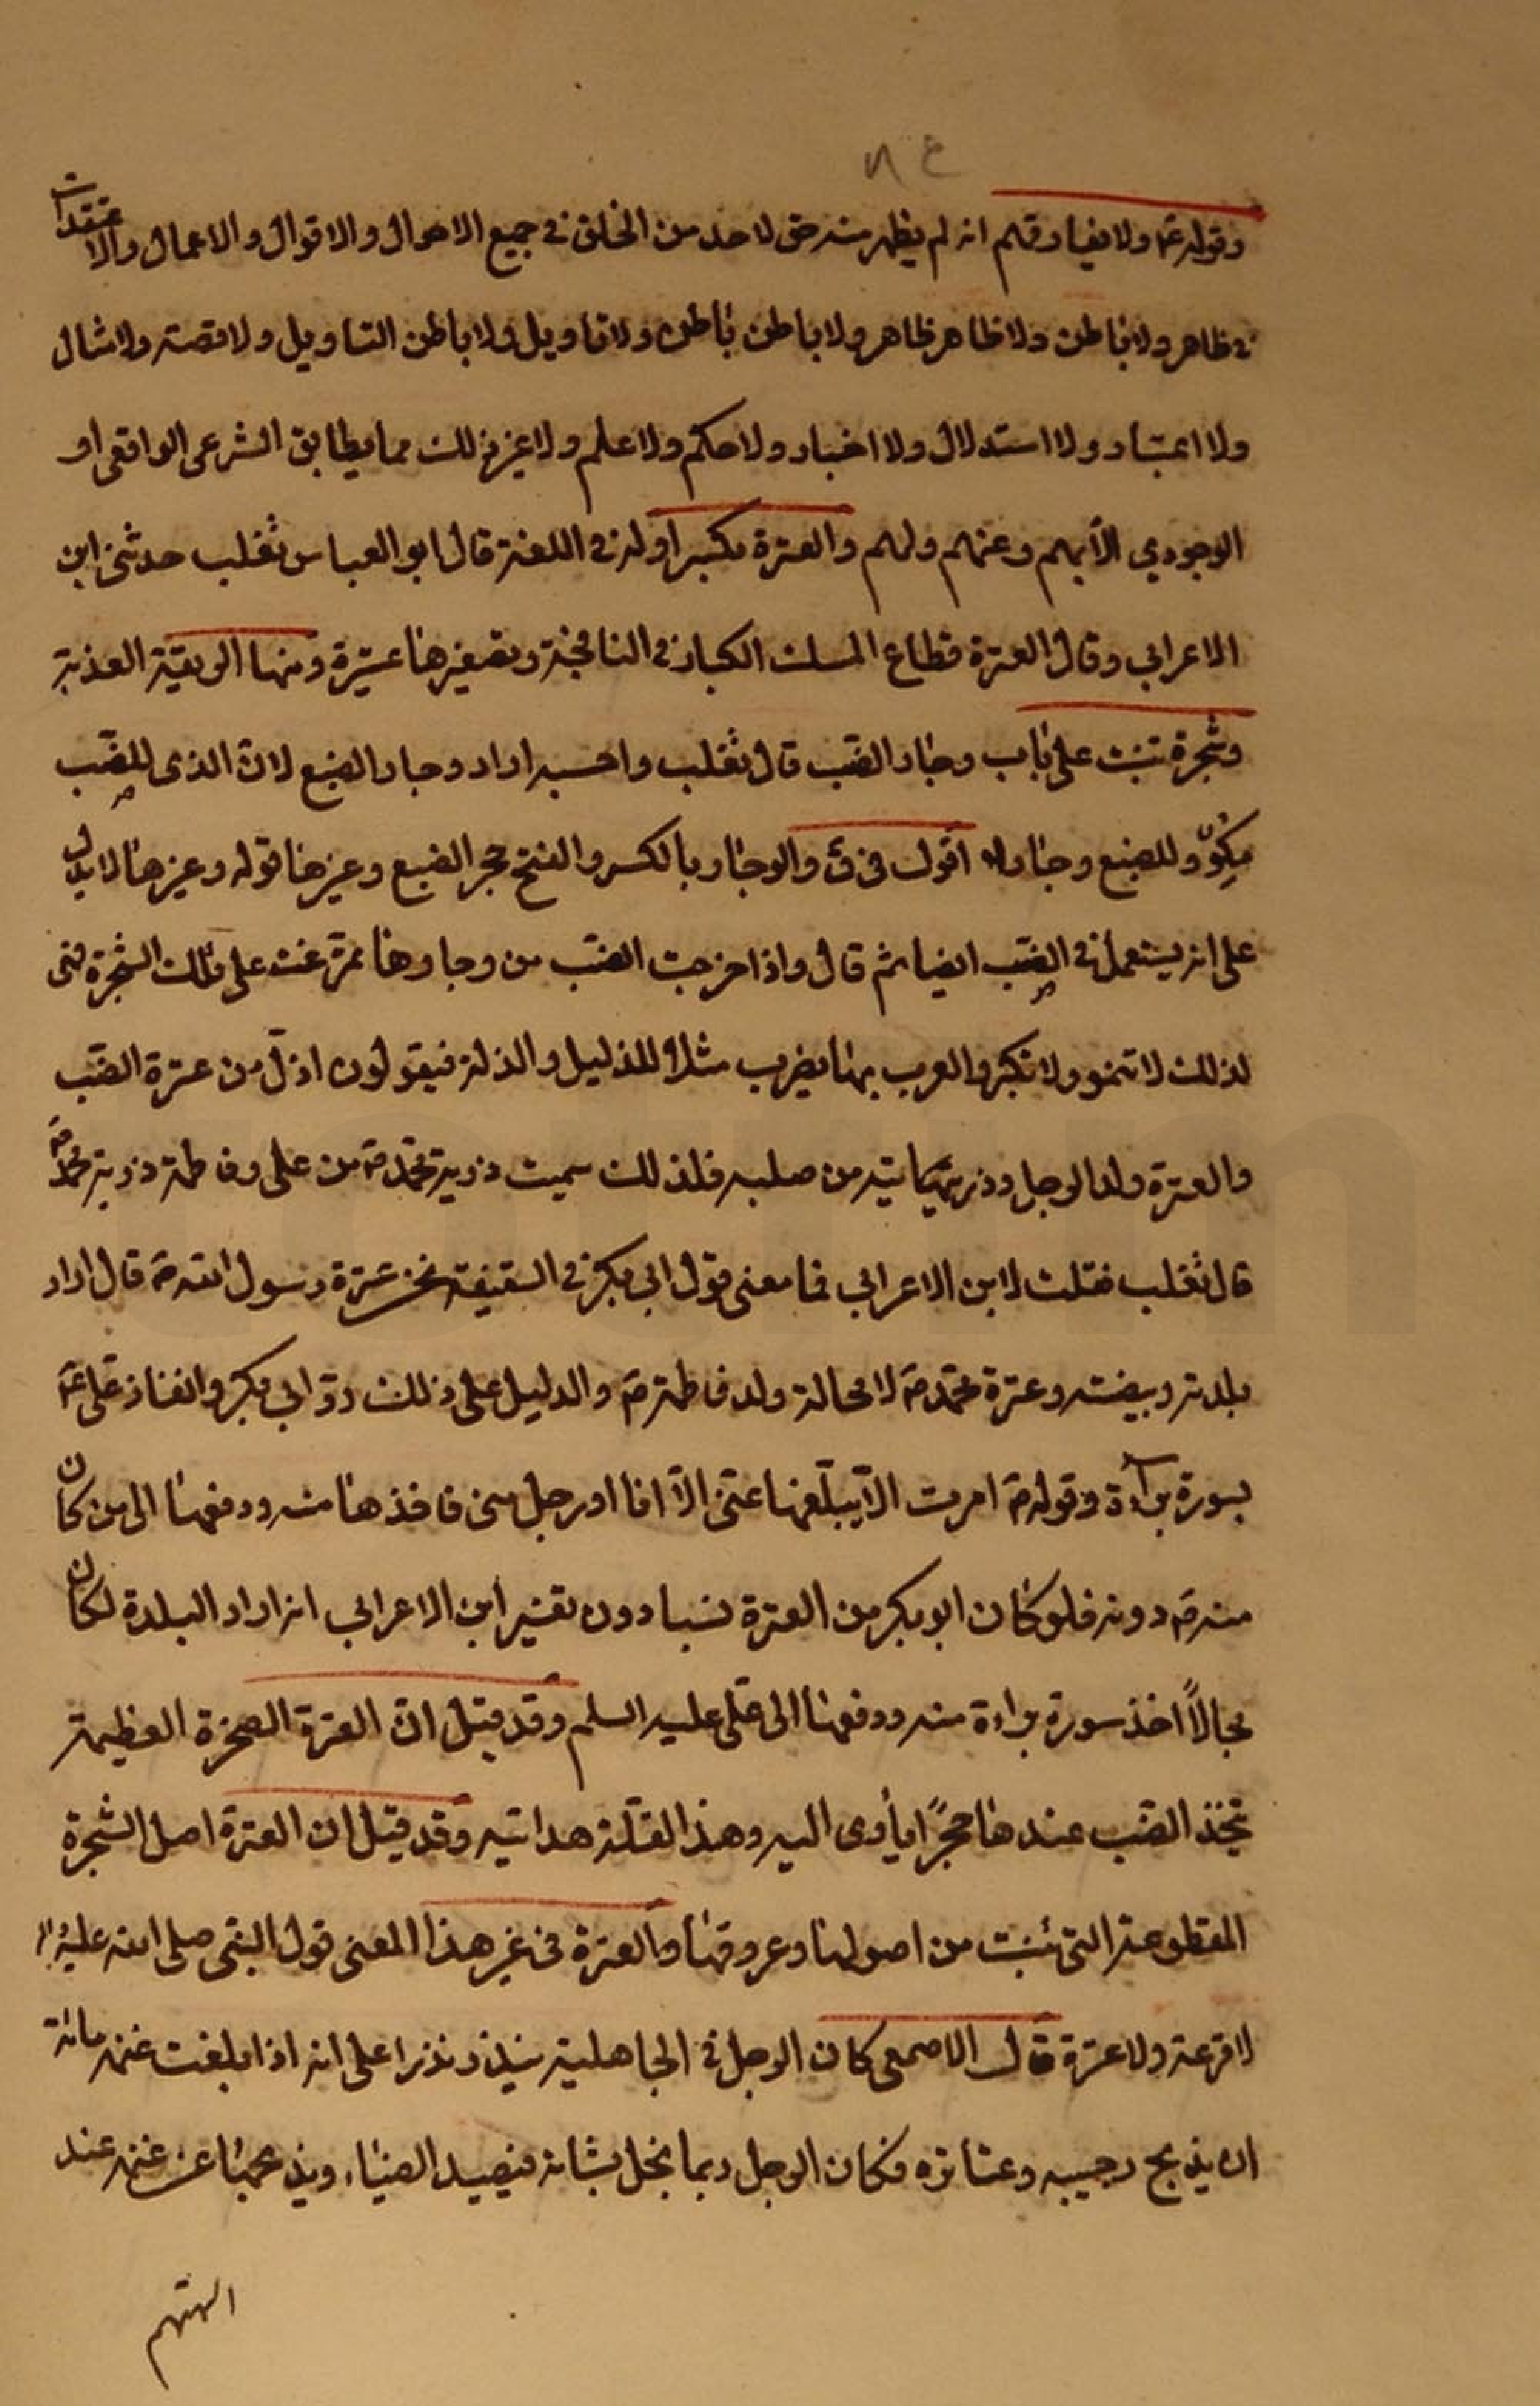 ٨٤
وقوله ع ولا يفارقهم انه لم يظهر منه حق لاحد من الخلق فى جميع الاحوال والاقوال والاعمال والاعتقدات
فى ظاهر ولا باطن ولا ظاهر ظاهر ولا باطن باطن ولا تاويل ولا باطن التاويل ولا قصة ولا مثال
ولا اعتبار ولا استدلال ولا اخبار ولا حكم ولا علم ولا غير ذلك مما يطابق الشرعى الواقعى او
الوجودي الا بهم وعنهم ولهم والعترة بكسر اوله فى اللغة قال ابو العباس ثغلب حدثنى ابن
الاعرابي وقال العترة قطاع المسك الكبار فى النافجة وتصغيرها عتيرة ومنها الريقة العذبة
وشجرة تنبت على باب وجار الضب قال ثغلب واحسبه اراد وجار الضبع لان الذى للضب
مكوّ وللضبع وجار اقول فى ق والوجار بالكسر والفتح جحر الضبع وغيرها قوله وغيرها لا يدل
على انه يستعمل فى الضب ايضا ثم قال واذا خرجت الضب من وجارها تمرغت على تلك الشجرة فهى
لذلك لا تنمو ولا تكبر والعرب بها يضرب مثلا للذليل والذلة فيقولون اذلّ من عترة الضب
والعترة ولد الرجل وذريته من صلبه فلذلك سميت ذرية محمّد ص من على وفاطمة ذرية محمّد ص
قال ثغلب فقلت لابن الاعرابي فما معنى قول ابى بكر فى السقيفة نحن عترة رسول الله ص قال اراد
بلدته وبيضته وعترة محمّد ص لا محالة ولد فاطمة ص والدليل على ذلك ردّ ابى بكر وانفاذ على ع
بسورة براءة وقوله ص امرت الّا يبلّغها عنّى الّا انا او رجل منى فاخذها منه ودفعها الى من كان
منه ص دونه فلو كان ابو بكر من العترة نسبا دون تفسير ابن الاعرابى انه اراد البلدة لكان
محالاً اخذ سورة براءة منه ودفعها الى على عليه السلم وقد قيل انّ العترة الصخرة العظيمة
يتخذ الضب عندها جحراً يأوى اليه وهذا لقلّة هدايته وقد قيل ان العترة اصل الشجرة
المقطوعة التى تنبت من اصولها وعروقها والعترة فى غير هذا المعنى قول النبى صلى الله عليه وآله
لا فرعة ولا عترة قال الاصمعى كان الرجل فى الجاهلية ينذر نذرا على انه اذا بلغت غنمه مائة
ان يذبح رجبيه وعتائره فكان الرجل ربما بخل بشاته فيصيد الضباء ويذبحها عن غنمه عند
الهتهم